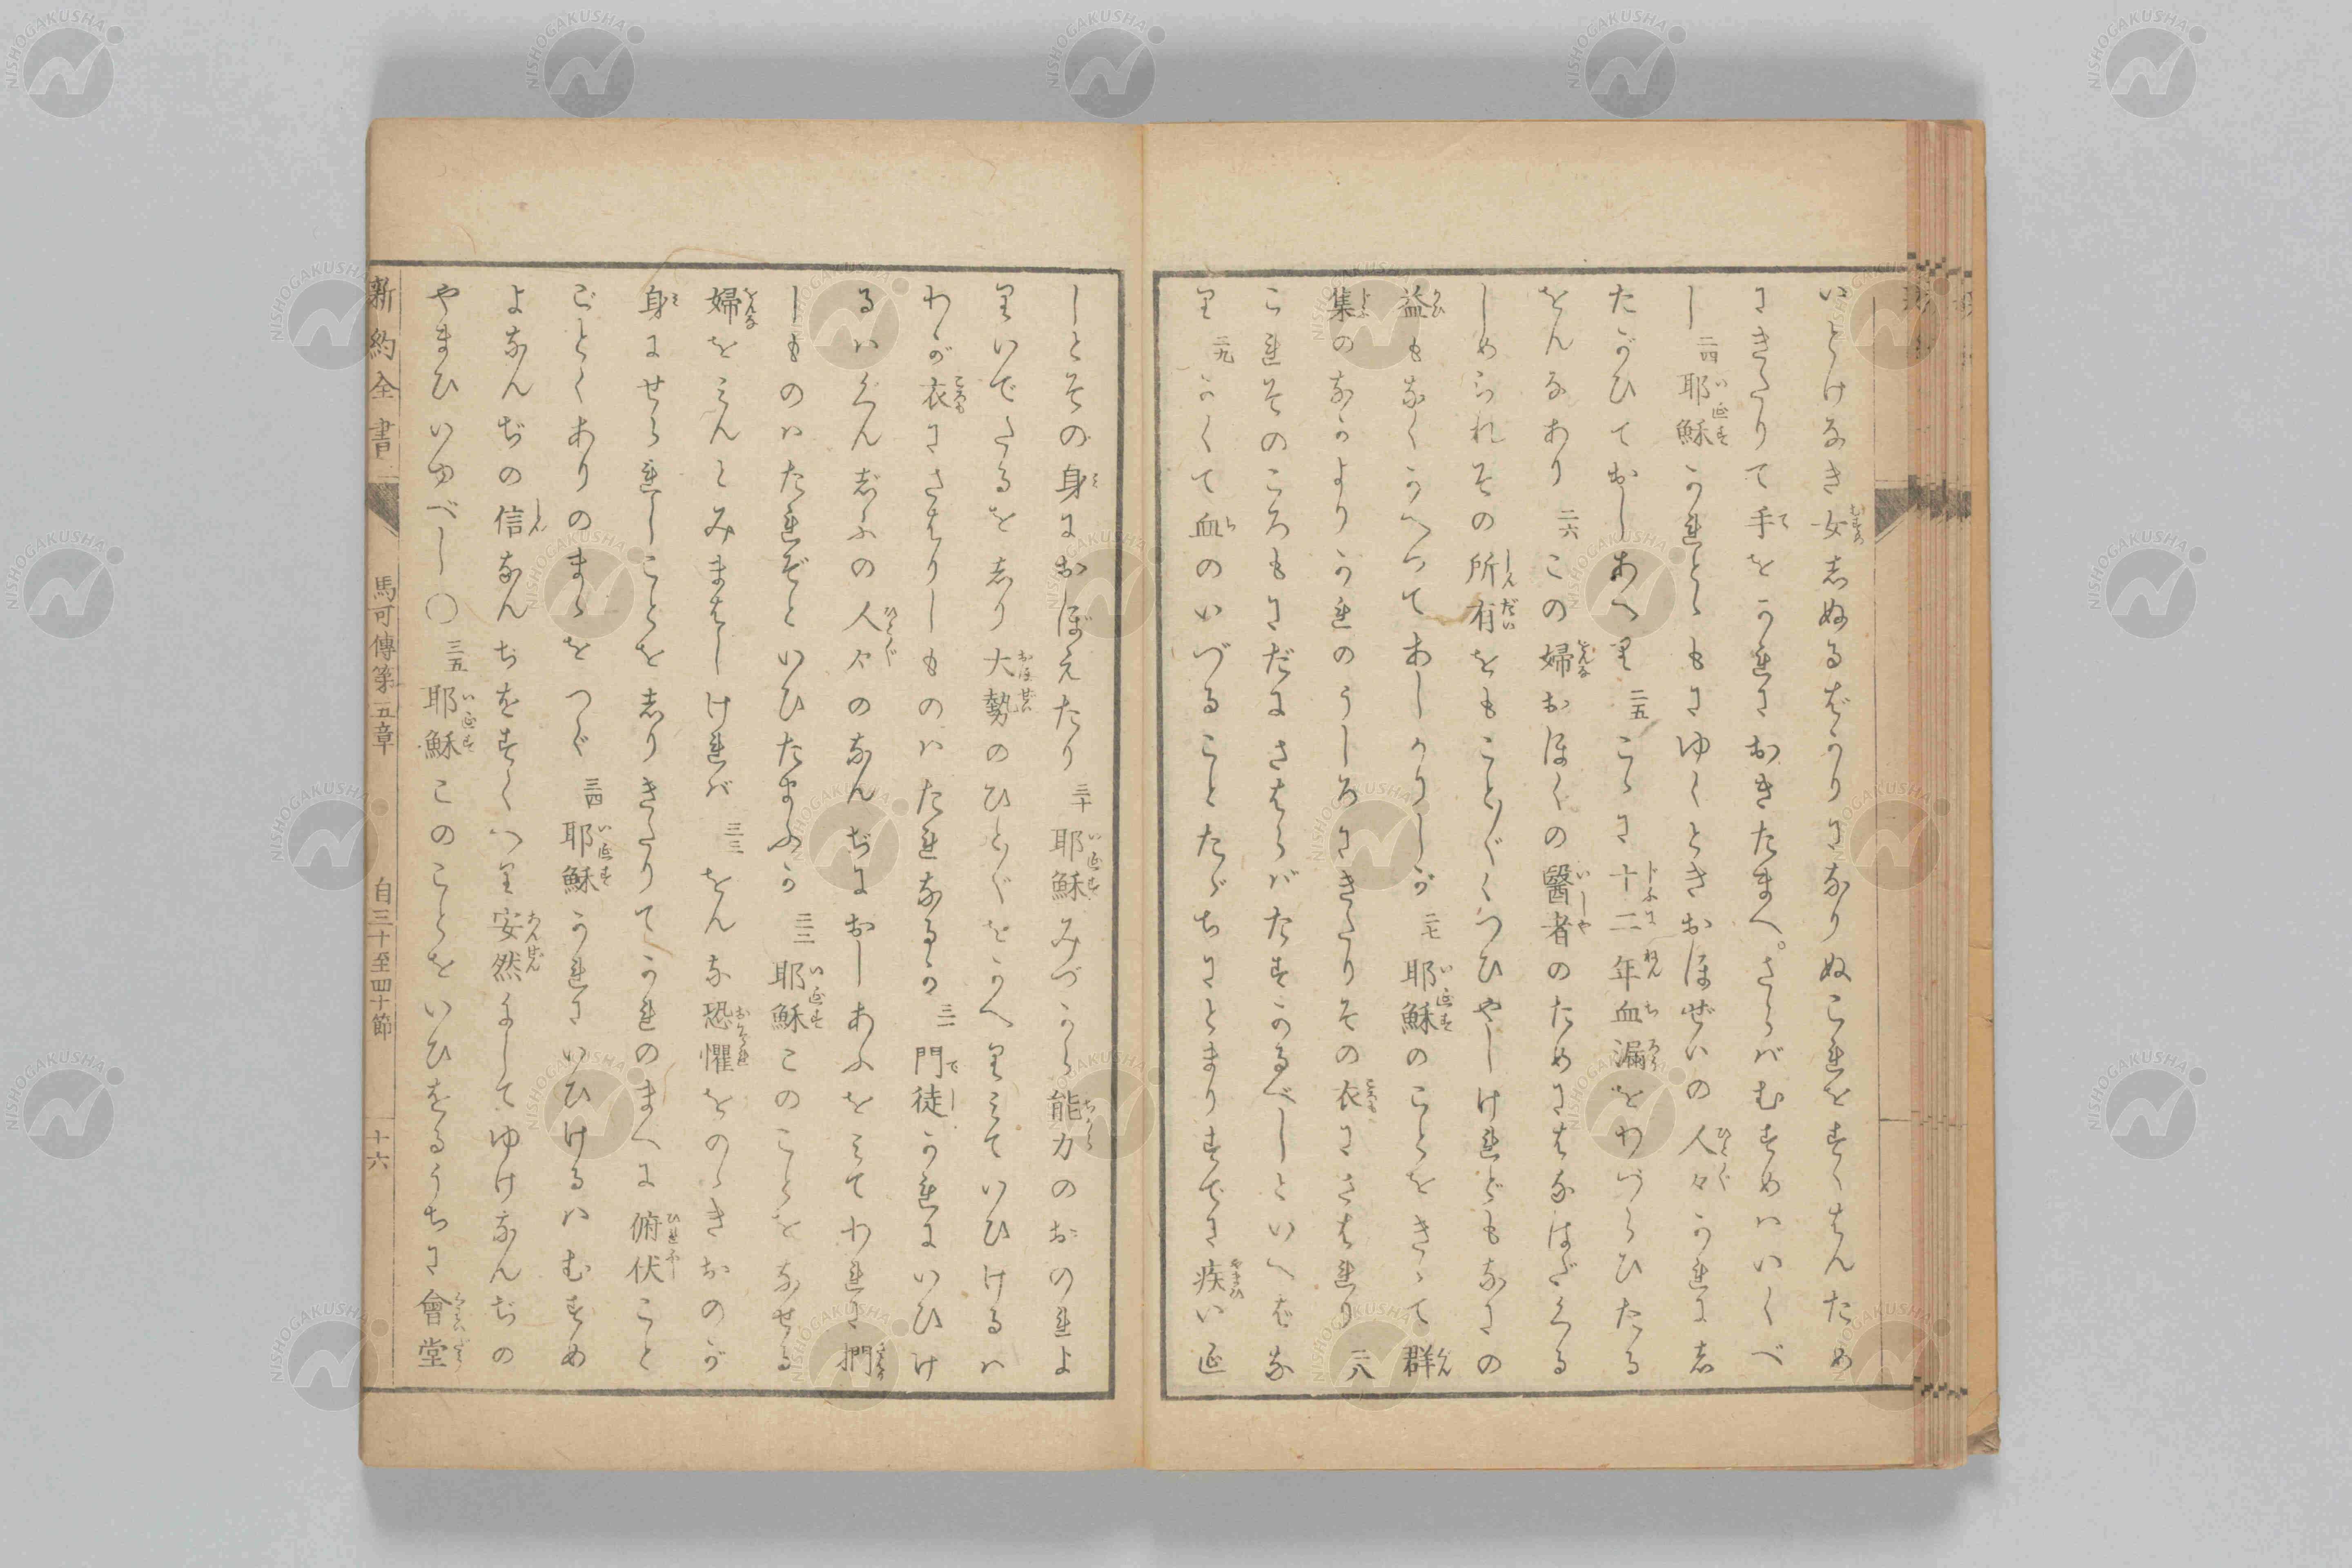 いとけなき女志ぬるばかりになりぬこれをすくはんため
にきたりて手をかれにおきたまへ。さらばむすめハいくべ
し 二四 耶穌かれとゝもにゆくときおほぜいの人々かれに志
たがひておしあへり 二五 こゝに十二年血漏をわづらひたる
をんなあり 二六 この婦おほくの醫者のためにはなはだくる
しめられその所有をもこと〴〵くつひやしけれどもなにの
益もなくかへつてあしかりしが 二七 耶穌のことをきゝて群
集のなかよりかれのうしろにきたりその衣にさはれり 二八
これそのころもにだにさはらバたすかるべしといへばな
り 二九 かくて血のいづることたゞちにとまりすでに疾いゑ
しとその身におぼえたり 三十 耶穌みづから能力のおのれよ
りいでたるを志り大勢のひと〴〵をかへりミていひけるハ
わが衣にさはりしものハたれなるか 三一 門徒かれにいひけ
るハくんじふの人々のなんぢにおしあふをミてわれに捫
しものハたれぞといひたまふか 三二 耶穌このことをなせる
婦をミんとみまはしけれバ 三三 をんな恐懼をのゝきおのが
身にせられしことを志りきたりてかれのまへに俯伏こと
ごとくありのまゝをつぐ 三四 耶穌かれにいひけるハむすめ
よなんぢの信なんぢをすくへり安然にしてゆけなんぢの
やまひいゆべし〇 三五 耶穌このことをいひをるうちに會堂
新約全書 馬可傳第五章 自三十至四十節 十六